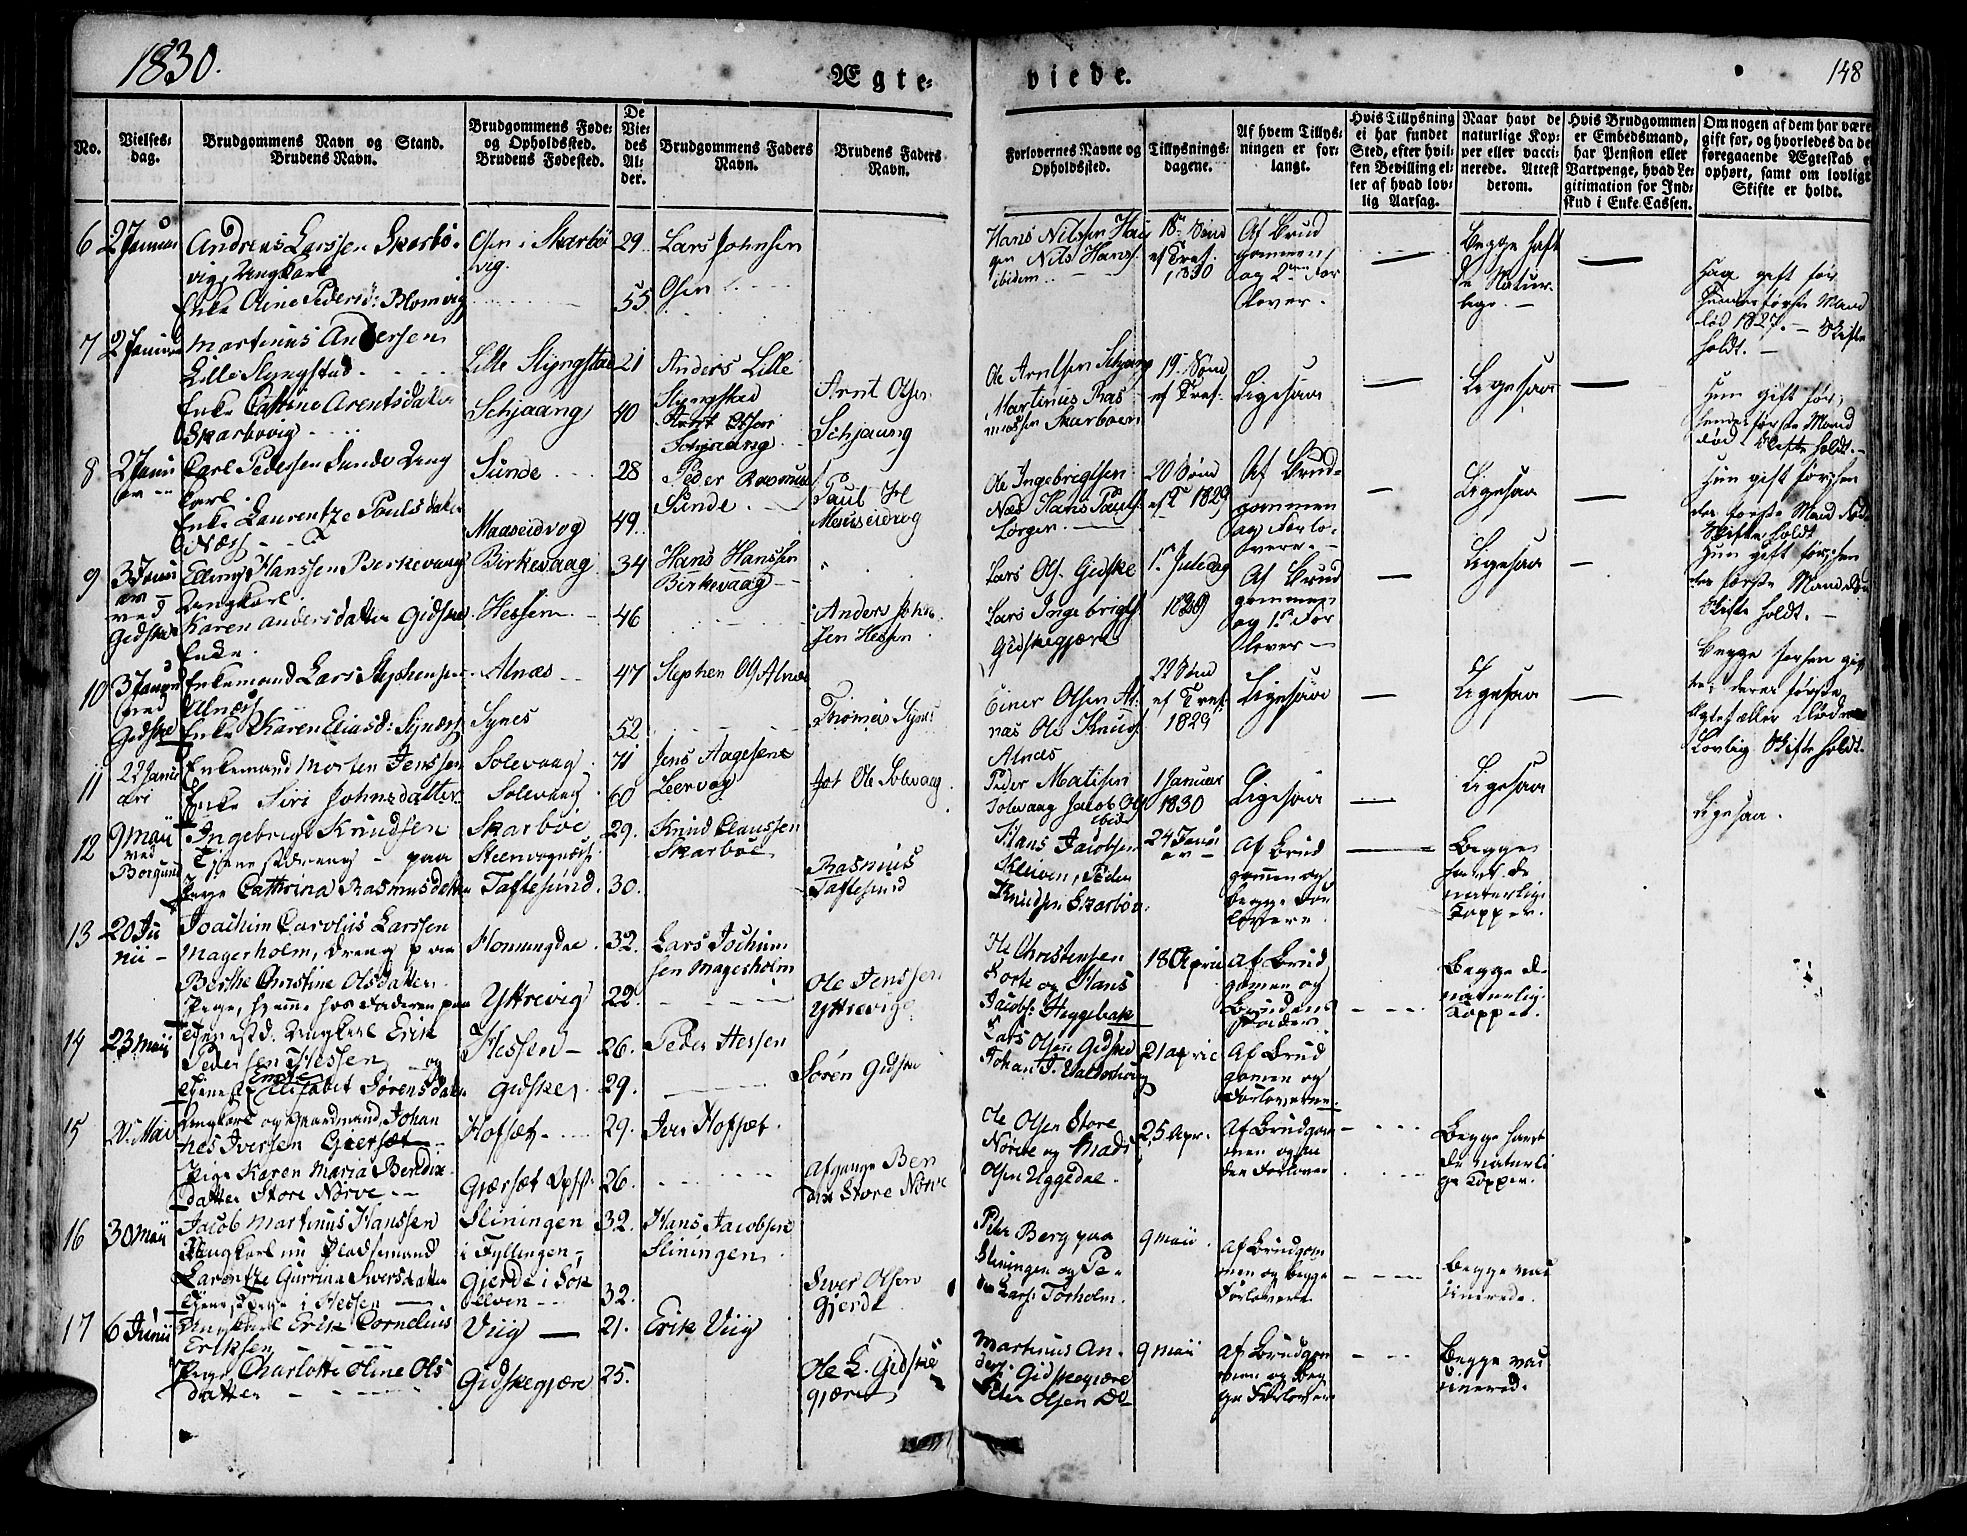 1830.
Ægte-
viede.
148
No.
Vielses-
dag.
Brudgommens Navn og Stand.
Brudens Navn.
Brudgommens Føde-
og Opholdssted.
Brudens Fødested.
De
Vie-
des
Al-
der.
Brudgommens Faders
Navn.
Brudens Faders
Navn.
Forlovernes Navne og
Opholdssted.
Tillysnings-
dagene.
Af hvem Tillys-
ningen er for-
langt.
Hvis Tillysning
ei har fundet
Sted, efter hvil-
ken Bevilling el-
ler af hvad lov-
lig Aarsag.
Naar havt de
naturlige Kop-
per eller vacci-
nerede. Attest
derom.
Hvis Brudgommen
er Embedsmand,
har Pension eller
Vartpenge, hvad Le-
gitimation for Ind-
skud i Enke-Cassen.
Om nogen af dem har være
gift før, og hvorledes da de
foregaaende Ægteskab e
ophørt, samt om lovligt
Skifte er holdt.
6
2 Januar
Andreas Larssen Skarbø-
vig, Ungkarl
Enke Oline Pedersd: Blomvig
Osen i Skarbø
vig.
29.
55
Lars Johnsen
Osen
Hans Nilssen Hau
gen Nils Hans.
ibidem
18de Sønd
ef Tref.
1830
Af Brud
gommen
og 2den For
lover.
Begge haft
de Natur-
lige.
gift før
første Mand
død 1827. - Skifte
holdt.
7
2 Januar
Martinus Andersen
Lille Slyngstad
Enke Cathrine Arentsdatter
Skarbøvig
Lille Slyngstad
Schjaang
21
40
Anders Lille
Slyngstad
Arnt Olsen
Schjaang
Arnt Olsen
Schjaung
Ole Arntsen Schjang
Martinus Ras
mussen Skarbøen
19de Sønd
ef Tref.
Ligesaa
Ligesaa
Hun gift før,
hendes første Mand
død Skifte holdt.
8
2 Janu
ar
Carl Pedersen Sunde Ung
karl
Enke Laurentze Poulsdatter
Næss
Sunde
Maaseidvog
28
49
Peder Rasmus
Sunde
Paul
Mauseidvog
Ole Ingebrigtsen
Næs Hans Pauls.
Lorgen
20 Sønd
ef T 1829
Af Brud-
gommen
og Forlo-
verne
Ligesaa
Hun gift før, hen
des første Mand død
Skifte holdt
9
3 Janu
ar
ved
Gidske
Elling Hanssen Berkevaag
Ungkarl
Karen Andersdatter Gidske
Enke.
Birkevaag
Hessen
34
46
Hans Hanssen
Birkevaag
Anders John
sen Hessen
Lars Ols. Gidske
Lars Ingebrigts.
Gidskegjære
1ste Juledag
1829
Af Brud
gommen
og 1ste For
lover
Ligesaa
Hun gift før, hen
des første Mand død
Skifte holdt.
10
3 Januar
ved
Gidske
Enkemand Lars Stephensen
Alnæs
Enke Karen Eliasd: Synæss
Alnæs
Synes
47
52
Stephen Ols Alnæs
Thomas Synes
Einer Olsen Al-
næs Ole Knuds.
Alnæs
22 Sønd
ef Tref.
1829
Ligesaa
Ligesaa
Begge forhen gif
te, deres første
Ægtefæller døde
Lovlig Skifte holdt.
11
22 Janu
ari
Enkemand Morten Jenssen
Enke Siri Johnsdatter
Solevaag
Solevaag
71
60
Jens Aagesen
Leervog
Ole Solevaag
Peder Matisen
Solevaag Jacob Ols
ibid
1 Januar
1830
Ligesaa
Ligesaa
Ligesaa.
12
9 Maii
ved
Borgund
Ingebrigt Knudsen
Tjenestdreng - paa
Pige Cathrina Rasmusdatter
Skarboe
Steenvognæs
Taftesund
29.
30.
Knud Claussen
Skarboe
Rasmus
Taftesund
Hans Jacobsen
Kleiven, Peder
Knudsen Skarbøn.
24 Janu
ar
Af Brud
gommen og
begge For
lovere
Begge
havt de
naturlige
Kopper.
13
20 Ju
nii
Joachim Carolus Larssen
Magerholm, Dreng paa
Berthe Christine Olsdatter
Pige, hjemme hos Faderen paa
Honningdal
Yttrevig
32.
22
Lars Jochum
sen Magerholm
Ole Jenssen
Yttrevige
Ole Christensen
Korte og Hans
Jacobs: Heggebak
18 Aprie
Af Brud
gomen og
Brudens
Fader
Begge de
naturlig
Kopper.
14
23 Maii
Tjenestd. Ungkarl Erik
Pedersen Hessen og
Enke
Tjenest Elisabet Sørensdatter
Hessen
Gidske
26.
29.
Peder Hessen
Søren Gidske
Lars Olsen Gidske
Johan J. Valderhoug
21 aprie
Af Brud
gomen og
Forloverne
15
20 Mai
Ungkarl og Gaardmand, Johan
nes Iversen Gjersæt
Pige Karen Maria Berdix
datter Store Nørve
Hofsæt
Gjærsæt
29.
26.
Iver Hofsæt.
Afgangne Ben
dix Store Nørve
Ole Olsen Store
Nørve og Mads
Olsen Uggedal.
25 Apr.
Af Brudgom
men og en
den Forlover
Begge havt
de naturli
ge Kopper.
16
30 Maii
Jacob Martinus Hanssen
Ungkarl nu Pladsemand
Larentze Gurrina Iversdatter
Tjenestpige i Hessen
Sliningen
i Fyllingen
Gjerde i Søk
elven
32.
32.
Hans Jacobsen
Sliningen
Siver Olsen
Gjerde
Peter Berg paa
Sliningen og Pe-
der Lars: Torholm.
9 maii
Af Brudgom
men og begge
Forlovere
Begge vac
sinerede.
17
6 Junii
Ungkarl Erik Cornelius
Eriksen
Pige Charlotte Oline Ols
datter
Viig
Gidskegjære
21.
25.
Erik Viig
Ole E. Gidske
gjære
Martinus An-
ders. Gidskegjære
Peter Olsen Do
9 maii
Af Brudgom
men og beg
ge Forlovere
Begge vac
sinerede.